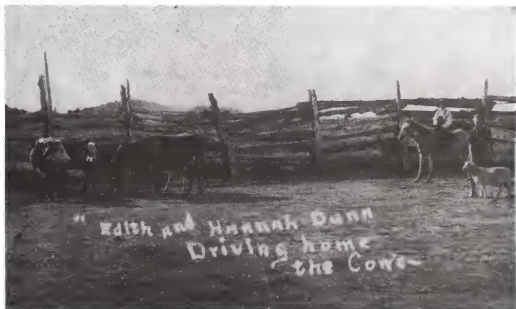 "Edith and Hannah Dunn
Driving home
the Cows